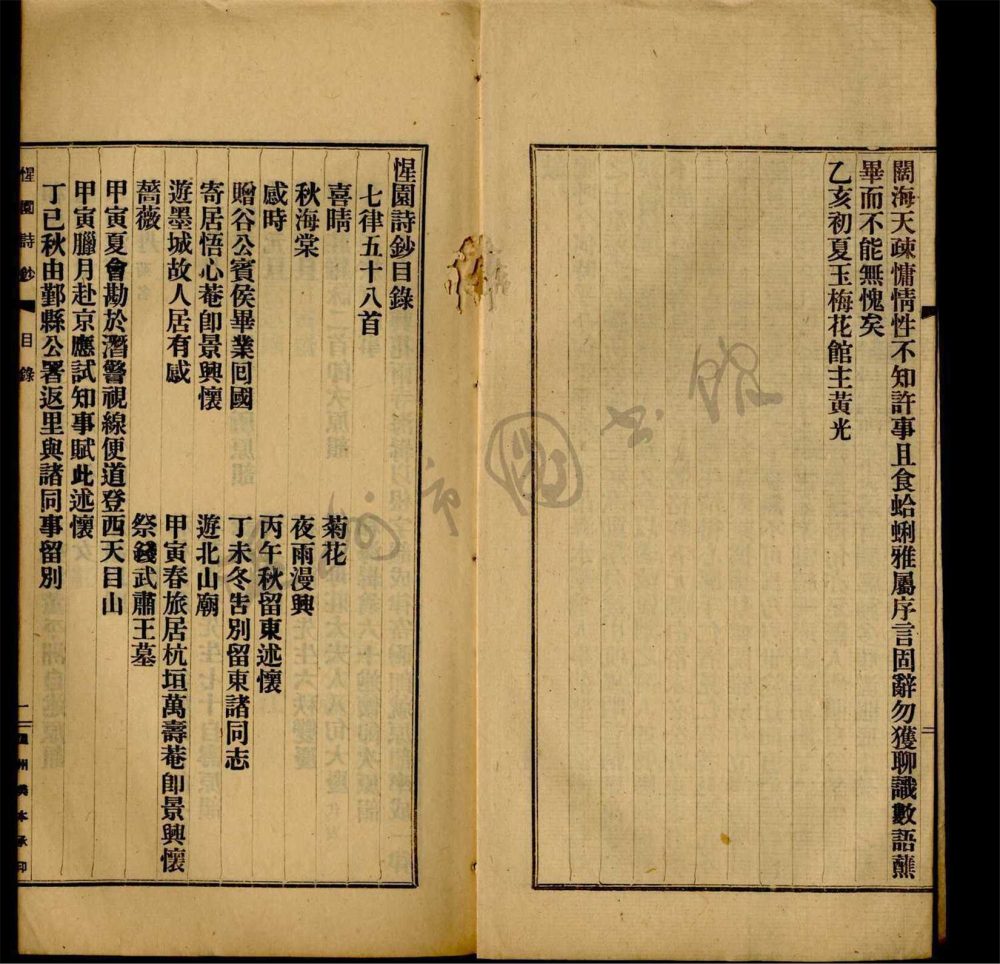 闊海天疎慵情性不知許事且食蛤蜊雅屬序言固辭勿獲聊識數語蘸
畢而不能無愧矣
乙亥初夏玉梅花館主黃光
惺園詩鈔目錄
七律五十八首
喜晴
菊花
秋海棠
夜雨漫興
感時
丙午秋留東述懷
贈谷公賓侯畢業回國
丁未冬告別留東諸同志
寄居悟心菴卽景興懷
遊北山廟
遊墨城故人居有感
甲寅春旅居杭垣萬壽菴卽景興懷
薔薇
祭錢武肅王墓
甲寅夏會勘於潛警視線便道登西天目山
甲寅臘月赴京應試知事賦此述懷
丁巳秋由鄞縣公署返里與諸同事留別
惺園詩鈔
目錄
一
市圖書館